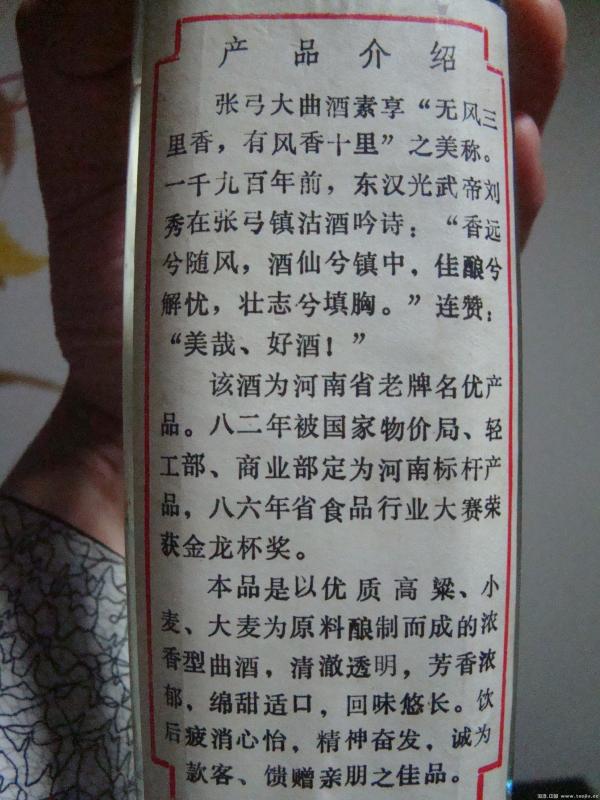 产品介绍
张弓大曲酒素享“无风三
里香，有风香十里”之美称。
一千九百年前，东汉光武帝刘
秀在张弓镇沽酒吟诗：“香远
兮随风，酒仙兮镇中，佳酿兮
解忧，壮志兮填胸。”连赞：
“美哉、好酒！”
该酒为河南省老牌名优产
品。八二年被国家物价局、轻
工部、商业部定为河南标杆产
品，八六年省食品行业大赛荣
获金龙杯奖。
本品是以优质高粱、小
麦、大麦为原料酿制而成的浓
香型曲酒，清澈透明，芳香浓
郁，绵甜适口，回味悠长。饮
后疲消心怡，精神奋发，诚为
款客、馈赠亲朋之佳品。